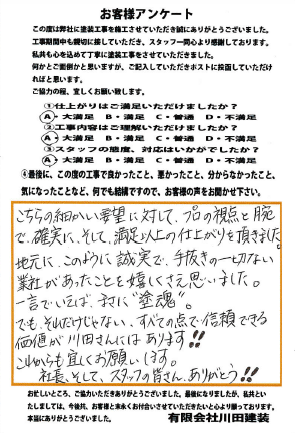 お客様アンケート
この度は弊社に塗装工事を施工させていただき誠にありがとうございました。
工事期間中も親切に接していただき、スタッフ一同心より感謝しております。
私共も心を込めて丁寧に塗装工事をさせていただきました。
何かとご面倒かと思いますが、ご記入していただきポストに投函していただけ
ればと思います。
ご協力の程、宜しくお願い致します。
①仕上がりはご満足いただけましたか?
A・大満足 B・満足 C・普通 D・不満足
②工事内容はご理解いただけましたか?
A・大満足 B・満足 C・普通 D・不満足
③スタッフの態度、対応はいかがでしたか?
A・大満足 B・満足 C・普通 D・不満足
④最後に、この度の工事で良かったこと、悪かったこと、分からなかったこと、
気になったことなど、何でも結構ですので、お客様の声をお聞かせ下さい。
こちらの細かい要望に対して、プロの視点と腕
で、確実に、そして、満足以上の仕上がりを頂きました。
地元に、このように誠実で、手抜きの一切ない
業社があったことを嬉しくさえ思いました。
一言でいえば、まさに"塗魂"。
でも、それだけじゃない、すべての点で信頼できる
価値が川田さんにはあります!!
これからも宜しくお願いします。
社長、そして、スタッフの皆さん、ありがとう!!
お忙しいところ、ご協力いただきありがとうございました。最後になりましたが、私共とい
たしましては、今後共、お客様と末永くお付合いさせていただきたいと心より願っております。
本当にありがとうございました。
有限会社川田建装